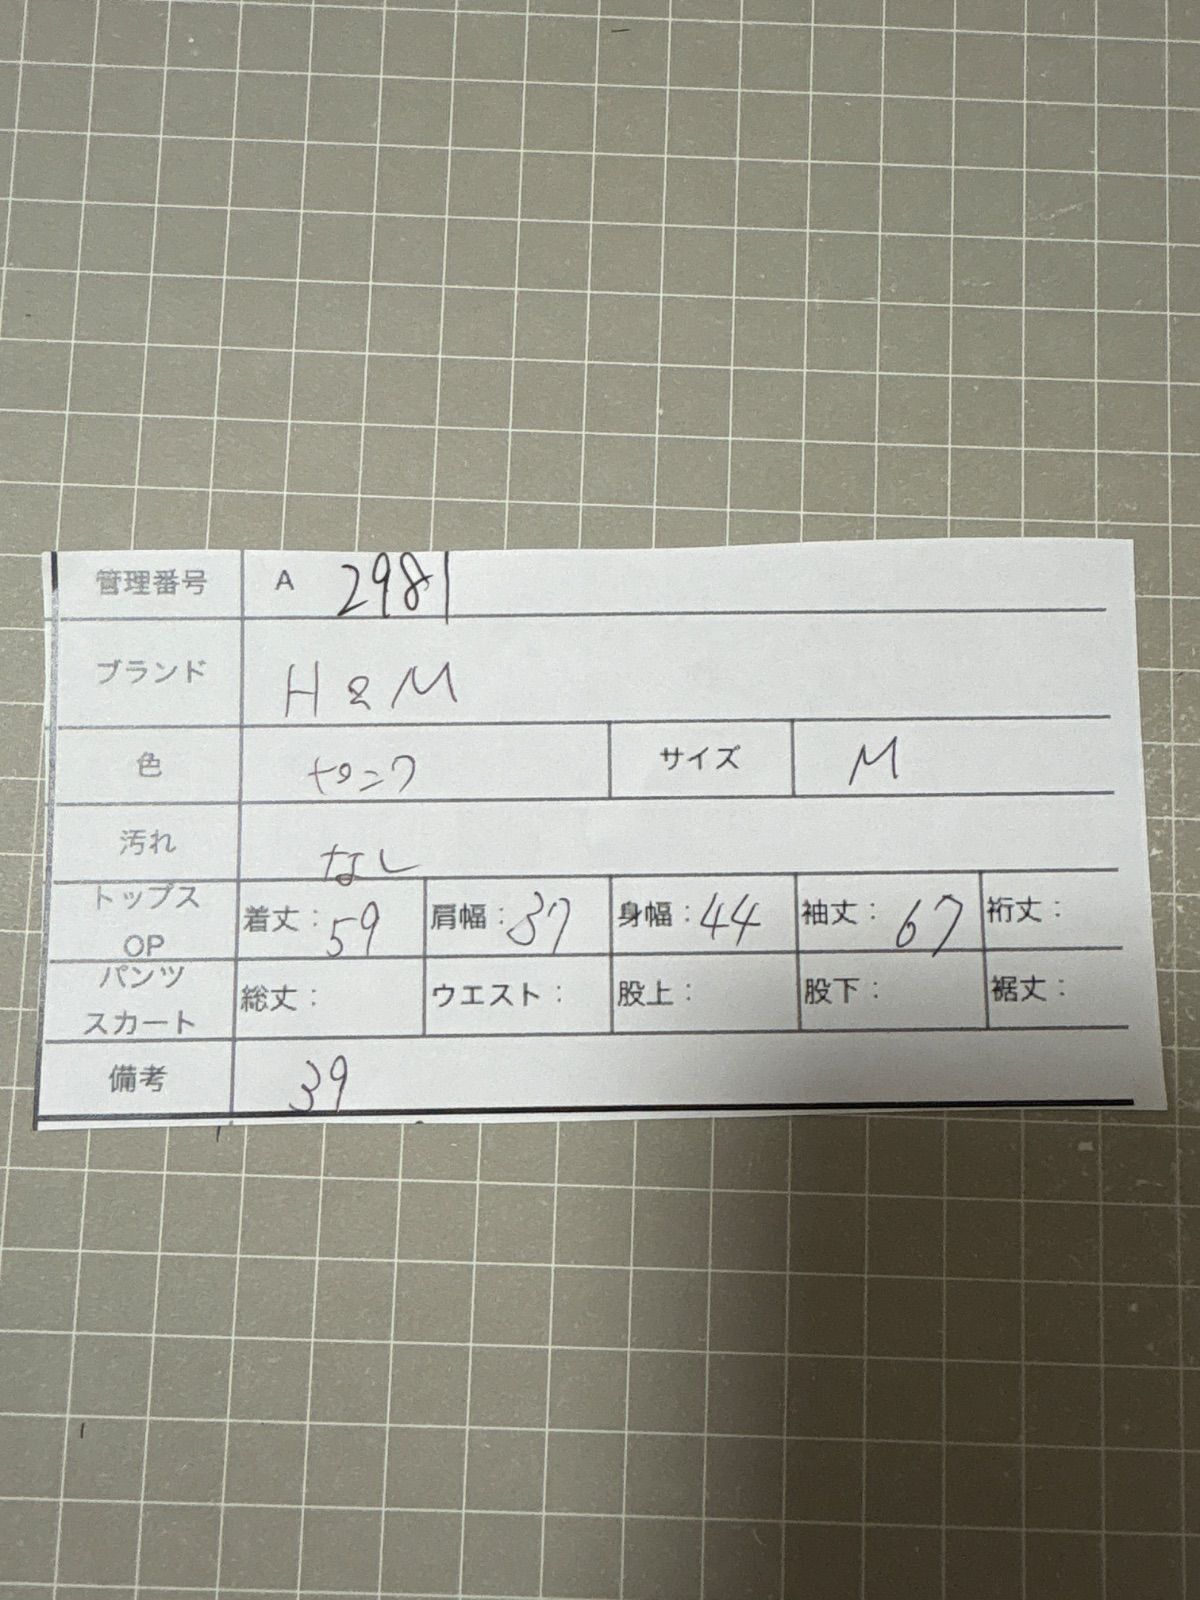 管理番号 A 2981
ブランド H&M
色 サイズ M
汚れ なし
トップス OP 着丈: 59 肩幅: 37 身幅: 44 袖丈: 67 裄丈:
パンツ スカート 総丈: ウエスト: 股上: 股下: 裾丈:
備考 39